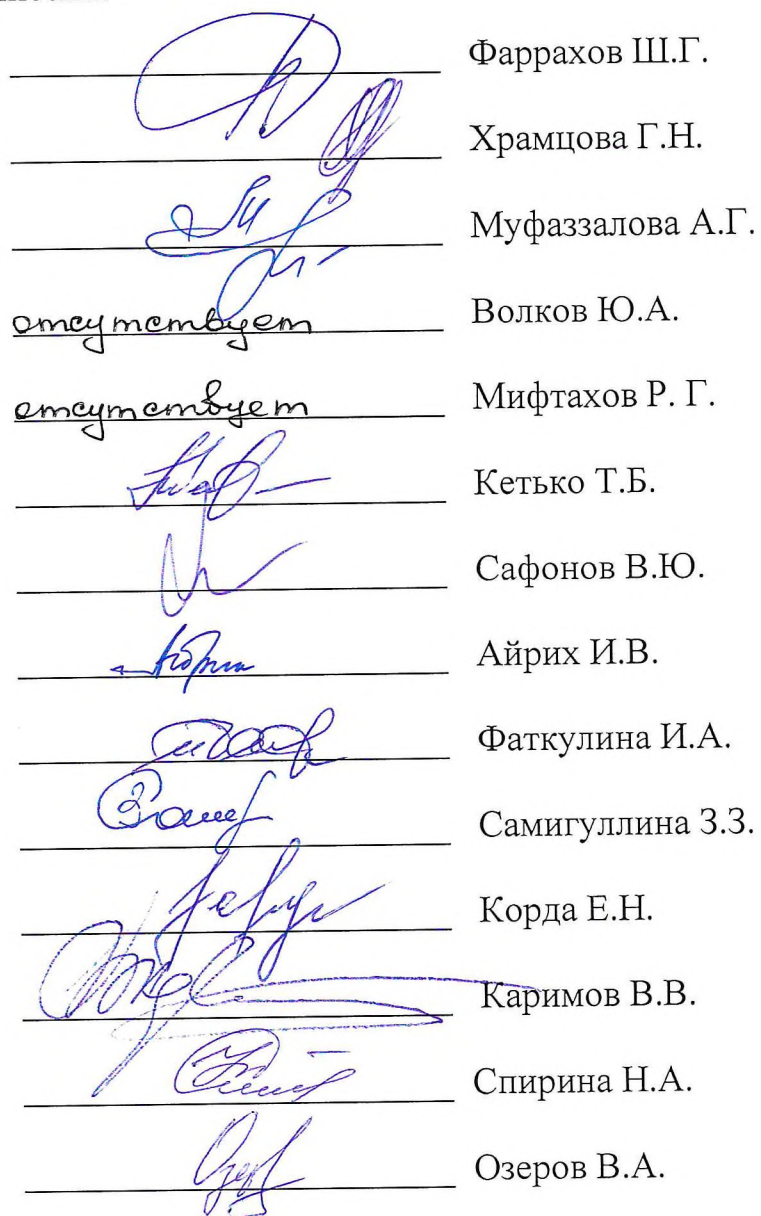 Фаррахов Ш.Г.
Храмцова Г.Н.
Муфаззалова А.Г.
отсутствует Волков Ю.А.
отсутствует Мифтахов Р. Г.
Кетько Т.Б.
Сафонов В.Ю.
Айрих И.В.
Фаткулина И.А.
Самигуллина З.З.
Корда Е.Н.
Каримов В.В.
Спирина Н.А.
Озеров В.А.